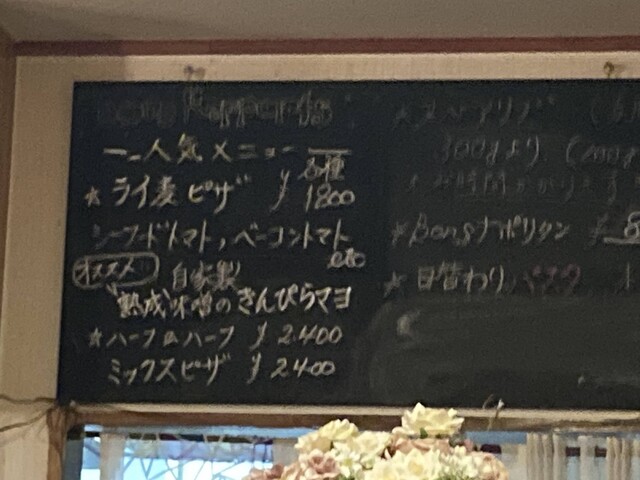 人気メニュー
各種
★ ライ麦ピザ ¥1800
シーフードトマト、ベーコントマト
オススメ!! 自家製
熟成味噌のきんぴらマヨ
★ ハーフ&ハーフ ¥2,400
ミックスピザ ¥2400
★ スペアリブ
300gより
お時間かかります
★ Bonsナポリタン ¥
★ 日替わりパスタ